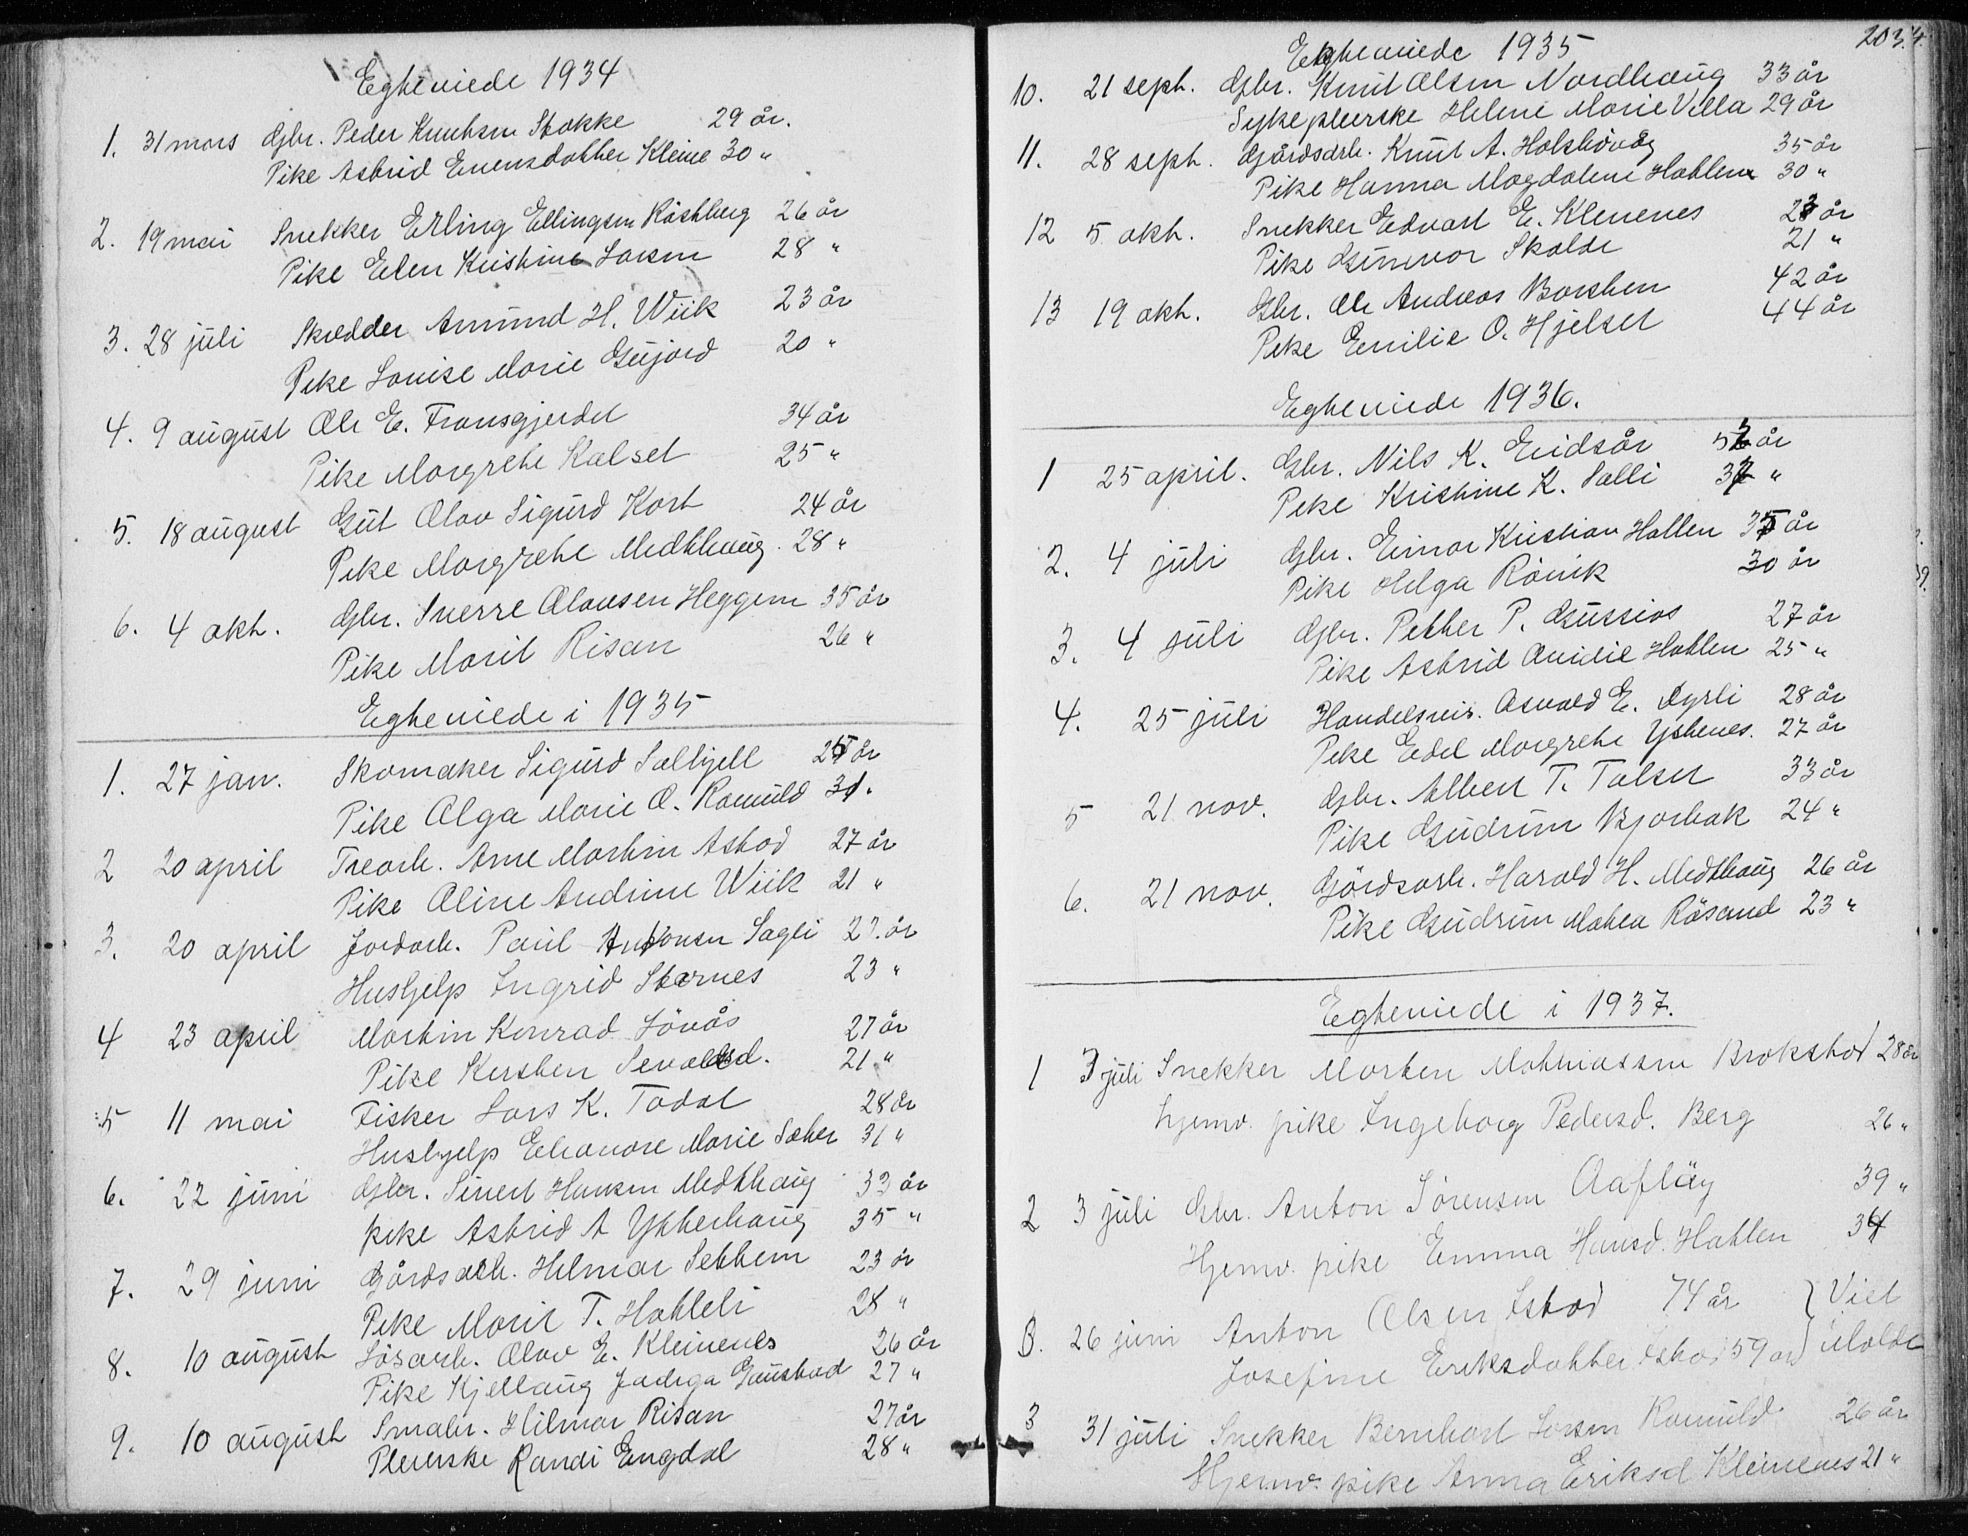 Egteviede 1934
1. 31 mars Gbr. Peder Knutsen Stokke 29 år.
Pike Astrid Evensdatter Kleive 30 "
2. 19 mai Snekker Erling Ellingsen Råstberg 26 år
Pike Ellen Kristine Larsen 28 "
3. 28 juli Skredder Amund H. Wiik 23 år
Pike Louise Marie Gujord 20 "
4. 9 august Ole E. Fransgjerdet 34 år
Pike Margrete Kalset 25 "
5. 18 august Gut Olav Sigurd Kort 24 år
Pike Margrete Medthaug. 28 "
6. 4 okt. Gbr. Sverre Olausen Heggem 35 år
Pike Marit Risan 26 "
Egteviede i 1935
1. 27 jan. Skomaker Sigurd Solbjell år
Pike Olga Marie O. Romuld 31.
2 20 april Trearb. Arne Martin Astad 27 år
Pike Oline Andrine Wiik 21 "
3. 20 april Jordarb. Paul Antonsen Sagli 27. år
Hushjelp Ingrid Stornes 23 "
4 23 april Martin Konrad Løvås 27 år
Pike Kersten Sevaldsd. 21 "
5 11 mai Fisker Lars K. Todal 28 år
Hushjelp Eleonore Marie Sæter 31 "
6. 22 juni Gbr. Sivert Hansen Medthaug 33 år
pike Astrid A Ytterhaug 35 "
7. 29 juni Gårdsarb. Helmar Settem 23 år
Pike Marit T. Hatleli 28 "
8. 10 august Løsarb. Olav E. Kleivenes 26 år
Pike Kjellaug Jadiga Gaustad 27 "
9. 10 august Småbr. Hilmar Risan 27 år
Pleierske Randi Engdal 28 "
203.
Egteviede 1935
10. 21 sept. Gbr. Knut Olsen Nordhaug 33 år
Sykepleierske Helene Marie Vella 29 år
11. 28 sept. Gårdsarb. Knut A. Holsbøvåg 35 år
Pike Hanna Magdalene Hatlen 30 "
12 5 okt. Snekker Edvart E. Kleivenes år
Pike Gunvor Skalde 21 "
13 19 okt. Gbr. Ole Andreas Borsten 42 år
Pike Emilie O. Hjelset 44 år
Egteviede 1936.
1 25 april. Gbr. Nils K. Eidsår år
Pike Kristine K. Solli "
2. 4 juli Gbr. Einar Kristian Hatlen 35 år
Pike Helga Rønik 30 år
3. 4 juli Gbr. Petter P. Gussiås 27 år
Pike Astrid Amalie Hatlen 25 "
4. 25 juli Handelsreis. Asvald E. Dyrli 28 år
Pike Edel Margrete Ystenes. 27 år
5 21 nov. Gbr. Albert T. Talset 33 år
Pike Gudrun Bjorbak 24 "
6. 21 nov. Gårdsarb. Harald H. Medthaug 26 år
Pike Gudrun Matea Røsand 23 "
Egteviede i 1937.
1 3 juli Snekker Morten Mathiassen Brokstad 28 år
hjemv. pike Ingeborg Pedersd. Berg 26 "
2 3 juli Gbr. Anton Sørensen Aafløy 39 "
Hjemv. pike Emma Hansd. Hatlen 34
3. 26 juni Anton Olsen Istad 74 år } Viet
Josefine Eriksdatter Istad 59 år } i Molde
3 31 juli Snekker Bernhart Larsen Romuld 26 år
Hjemv. pike Anna Eriksd Kleivenes 21 "